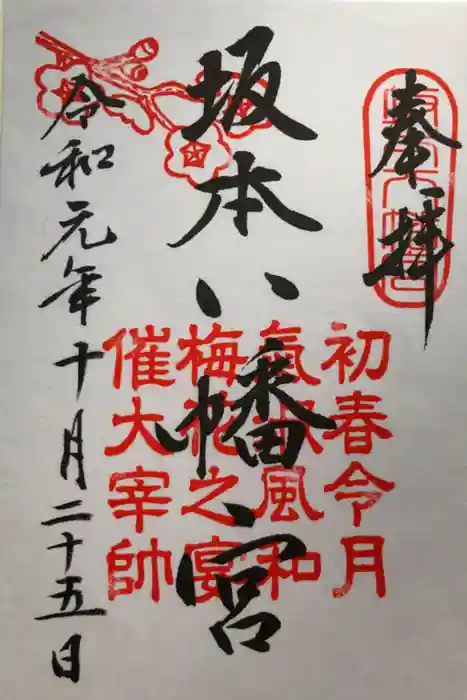 奉拝
初春令月
氣淑風和
梅花之宴
催大宰帥
坂本八幡宮
令和元年十月二十五日